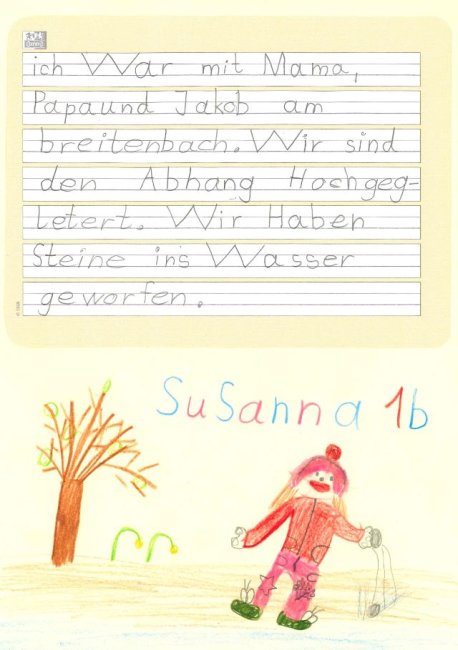 ich War mit Mama,
Papaund Jakob am
breitenbach. Wir sind
den Abhang Hochgeg-
letert. Wir Haben
Steine ins Wasser
geworfen.
SuSanna 1b